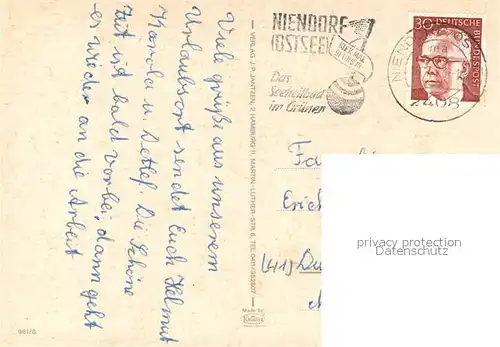 Viele Grüße aus unserem
Urlaubsort sendet Euch Helmut
Karola u. Detlef. Die Schöne
Zeit ist bald vorbei, dann geht
er wieder an die Arbeit
VERLAG J. P. JANTZEN, 2 HAMBURG 11, MARTIN-LUTHER-STR. 6, TEL. 0411/362807
Made by
Krüger
981/8
NIENDORF
(OSTSEE)
Das
Seeheilbad
im Grünen
NIENDORF
2408
30 DEUTSCHE
BUNDESPOST
Fa
Erich
(415) Du
privacy protection
Datenschutz